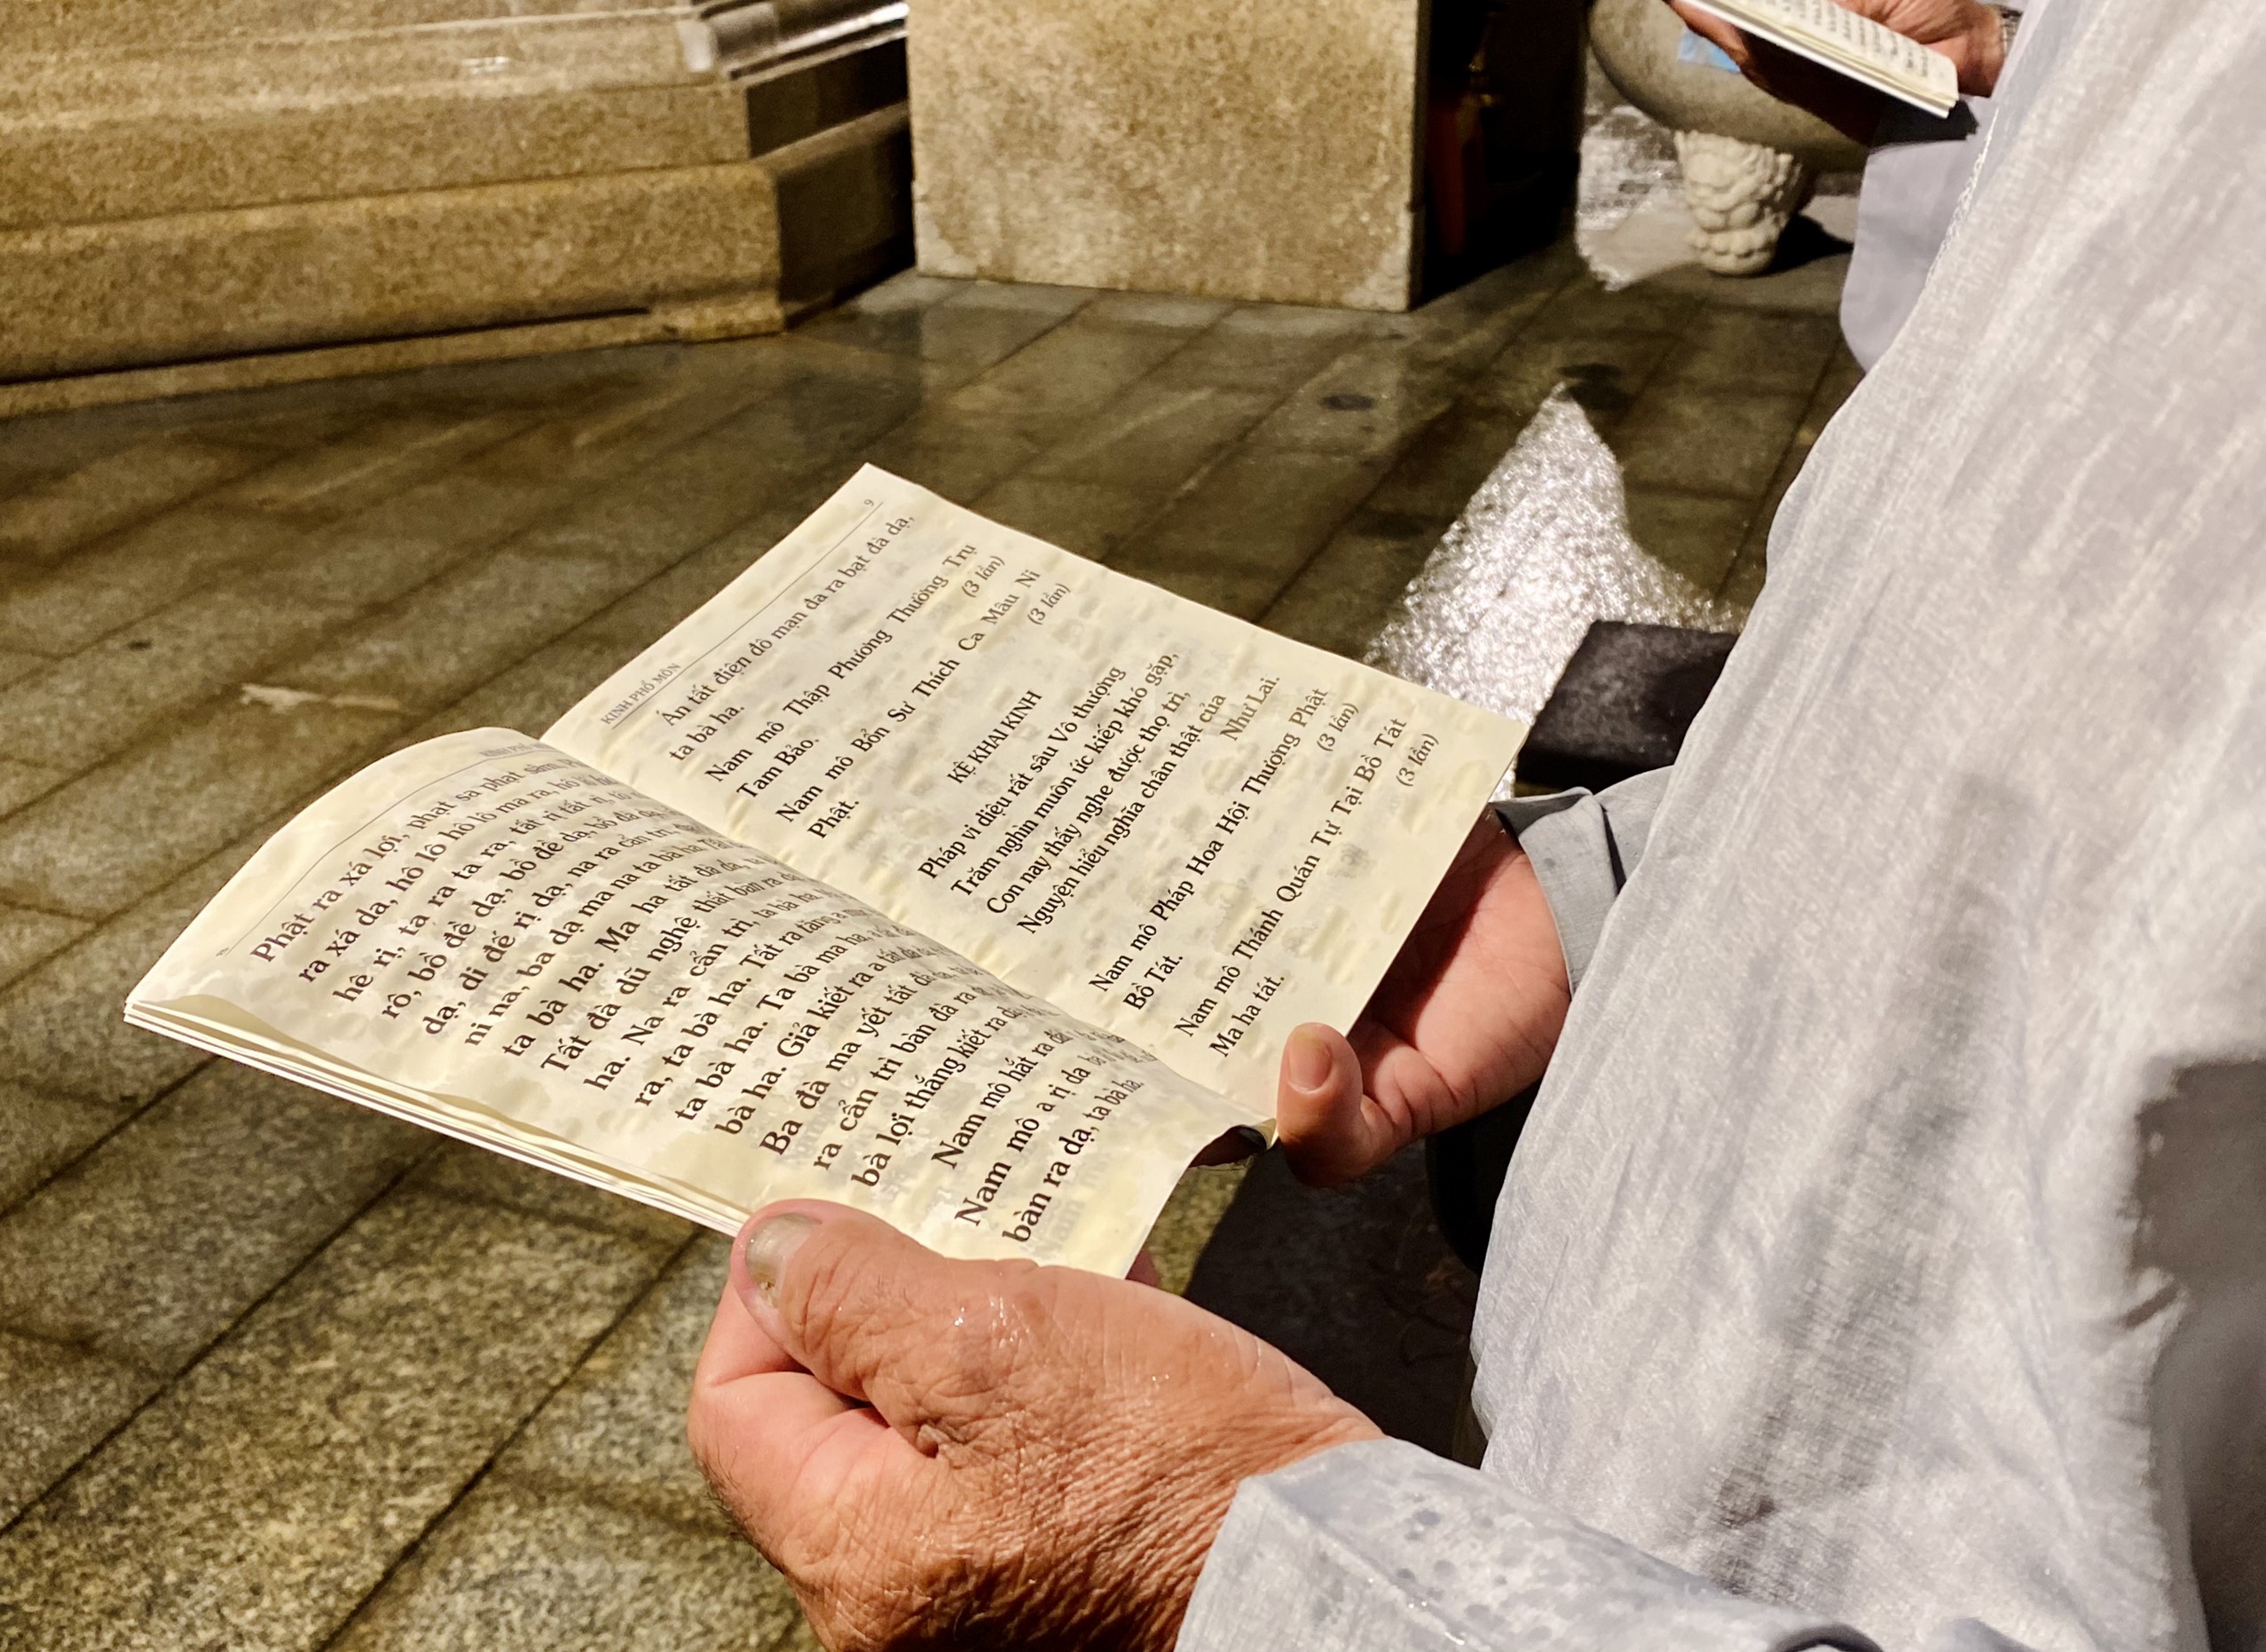 KINH PHỔ
Phật ra xá lợi, phạt sa phạt sâm,
ra xá da, hô lô hô lô ma ra, hô lô
hê rị, ta ra ta ra, tất rị tất rị, tô
rô, bồ đề dạ, bồ đề dạ, bồ đà dạ,
dạ, di đế rị dạ, na ra cẩn trì,
ni na, ba dạ ma na ta bà ha. Tất
ta bà ha. Ma ha tất đà dạ, ta
Tất đà dũ nghệ thất bàn ra dạ
ha. Na ra cẩn trì, ta bà ha.
ra, ta bà ha. Tất ra tăng a
ta bà ha. Ta bà ma ha, a
bà ha. Giả kiết ra a tất đà dạ
Ba đà ma yết tất đà dạ, ta
ra cẩn trì bàn đà ra dạ,
bà lợi thắng kiết ra dạ,
Nam mô hắt ra đát
Nam mô a rị da
bàn ra dạ, ta bà ha.
KINH PHỔ MÔN 9
Án tất điện đô mạn đa ra bạt đà dạ,
ta bà ha.
Nam mô Thập Phương Thường Trụ
Tam Bảo. (3 lần)
Nam mô Bổn Sư Thích Ca Mâu Ni
Phật. (3 lần)
KỆ KHAI KINH
Pháp vi diệu rất sâu Vô thượng
Trăm nghìn muôn ức kiếp khó gặp,
Con nay thấy nghe được thọ trì,
Nguyện hiểu nghĩa chân thật của
Như Lai.
Nam mô Pháp Hoa Hội Thượng Phật
Bồ Tát. (3 lần)
Nam mô Thánh Quán Tự Tại Bồ Tát
Ma ha tát. (3 lần)